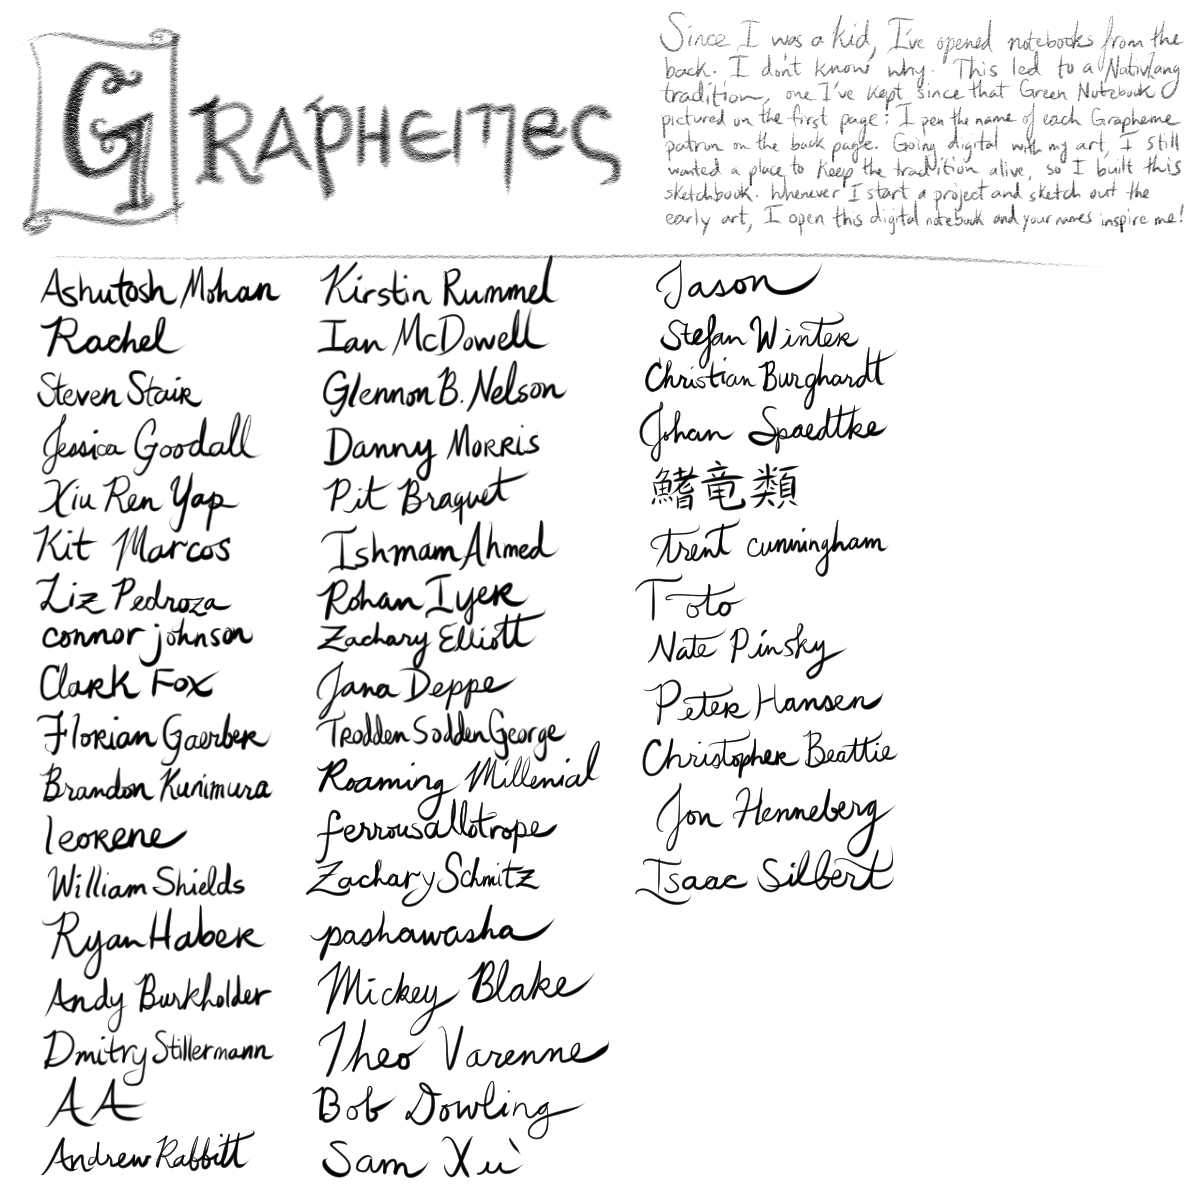 GRAPHEMES
Since I was a kid, I've opened notebooks from the
back. I don't know why. This led to a NativLang
tradition, one I've kept since that Green Notebook
pictured on the first page: I pen the name of each Grapheme
patron on the back page. Going digital with my art, I still
wanted a place to keep the tradition alive, so I built this
sketchbook. Whenever I start a project and sketch out the
early art, I open this digital notebook and your names inspire me!
Ashutosh Mohan
Rachel
Steven Stair
Jessica Goodall
Xiu Ren Yap
Kit Marcos
Liz Pedroza
connor johnson
Clark Fox
Florian Gaerber
Brandon Kunimura
leorene
William Shields
Ryan Haber
Andy Burkholder
Dmitry Stillermann
A A
Andrew Rabbitt
Kirstin Rummel
Ian McDowell
Glennon B. Nelson
Danny Morris
Pit Braquet
Ishmam Ahmed
Rohan Iyer
Zachary Elliott
Jana Deppe
Trodden Sodden George
Roaming Millenial
ferrousallotrope
Zachary Schmitz
pashawasha
Mickey Blake
Theo Varenne
Bob Dowling
Sam Xù
Jason
Stefan Winter
Christian Burghardt
Johan Spaedtke
鰭竜類
trent cunningham
Toto
Nate Pinsky
Peter Hansen
Christopher Beattie
Jon Henneberg
Isaac Silbert